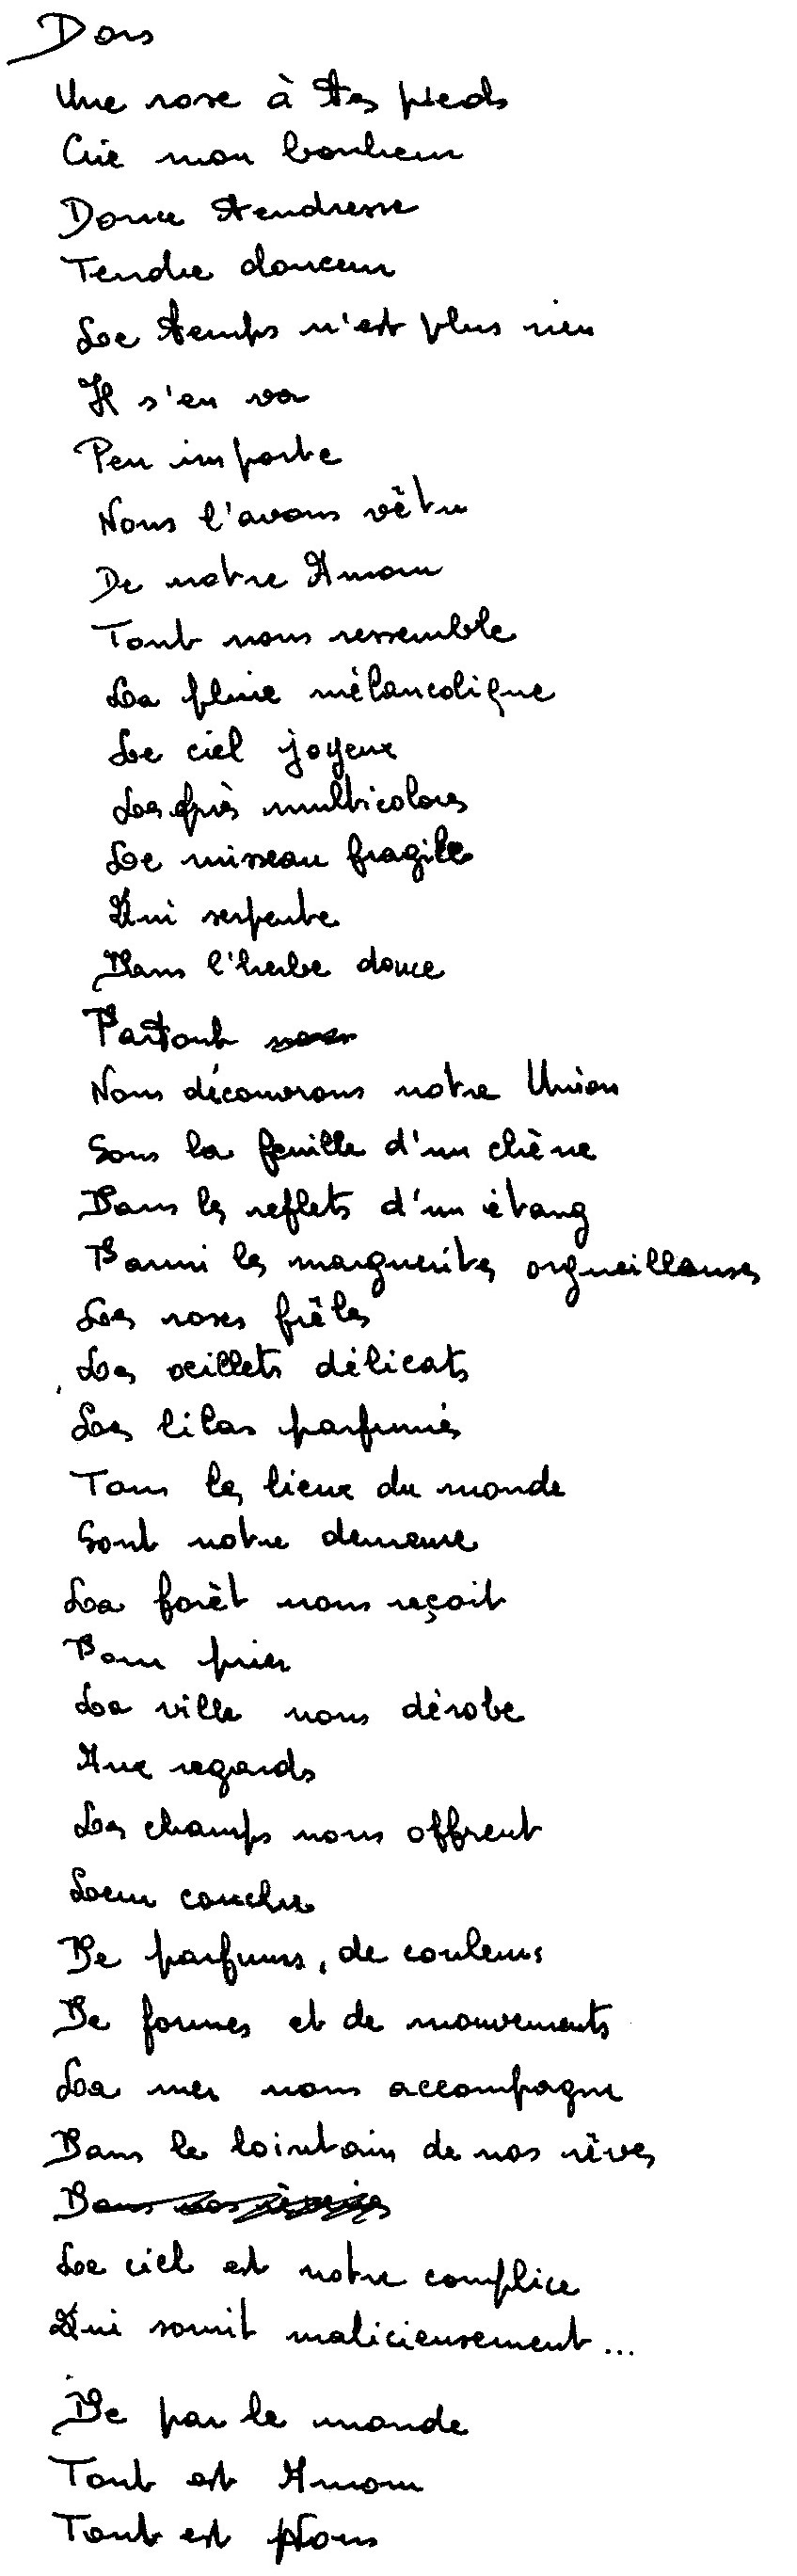 Dors
Une rose à tes pieds
Crie mon bonheur
Douce tendresse
Tendre douceur
Le temps n'est plus rien
Il s'en va
Peu importe
Nous l'avons vêtu
De notre Amour
Tout nous ressemble
La pluie mélancolique
Le ciel joyeux
Les prés multicolores
Le ruisseau fragile
Qui serpente
Dans l'herbe douce
Partout
Nous découvrons notre Union
Sous la feuille d'un chêne
Dans les reflets d'un étang
Parmi les marguerites orgueilleuses
Les roses frêles
Les œillets délicats
Les lilas parfumés
Tous les lieux du monde
Sont notre demeure
La forêt nous reçoit
Pour prier
La ville nous dérobe
Aux regards
Les champs nous offrent
Leur couche
De parfums, de couleurs
De formes et de mouvements
La mer nous accompagne
Dans le lointain de nos rêves
Le ciel est notre complice
Qui sourit malicieusement...
De par le monde
Tout est Amour
Tout est Nous